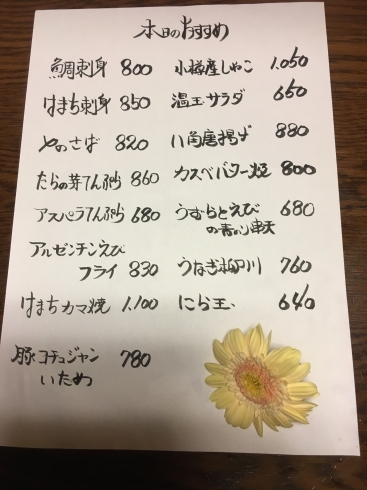 本日のおすすめ
鯛刺身 800
はまち刺身 850
たらの芽てんぷら 860
アスパラてんぷら 680
アルゼンチンえび
フライ 830
はまちカマ焼 1,100
豚コチュジャン
いため 780
小樽産しゃこ 1,050
温玉サラダ 650
八角唐揚げ 880
カスベバター焼 800
うずらとえび
の青のり串天 680
うなぎ柳川 760
にら玉 640